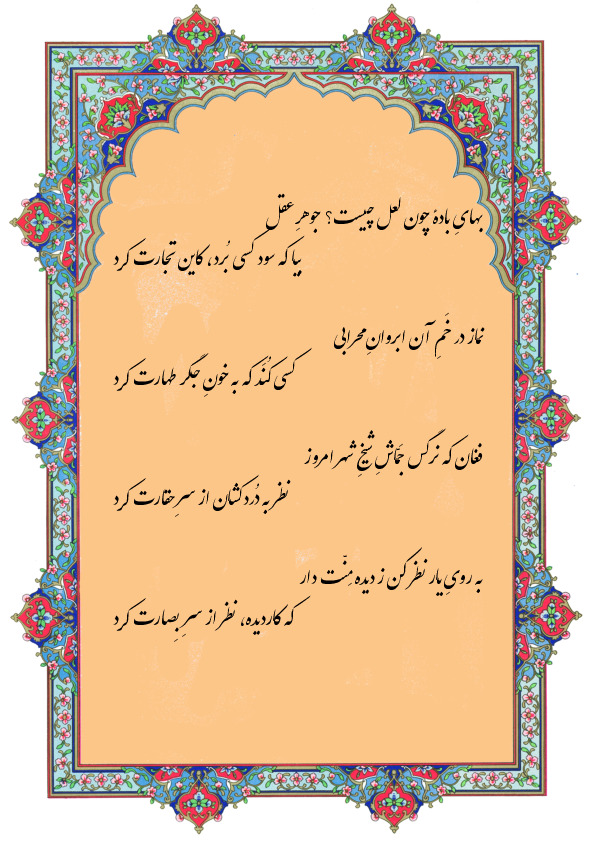 بهایِ بادهٔ چون لعل چیست؟ جوهرِ عقل
بیا که سود کسی بُرد، کاین تجارت کرد
نماز در خَمِ آن ابروانِ محرابی
کسی کُنَد که به خونِ جگر طهارت کرد
فغان که نرگس جمّاشِ شیخِ شهر امروز
نظر به دُردکشان از سرِ حقارت کرد
به رویِ یار نظر کن ز دیده مِنّت دار
که کاردیده، نظر از سرِ بِصارت کرد